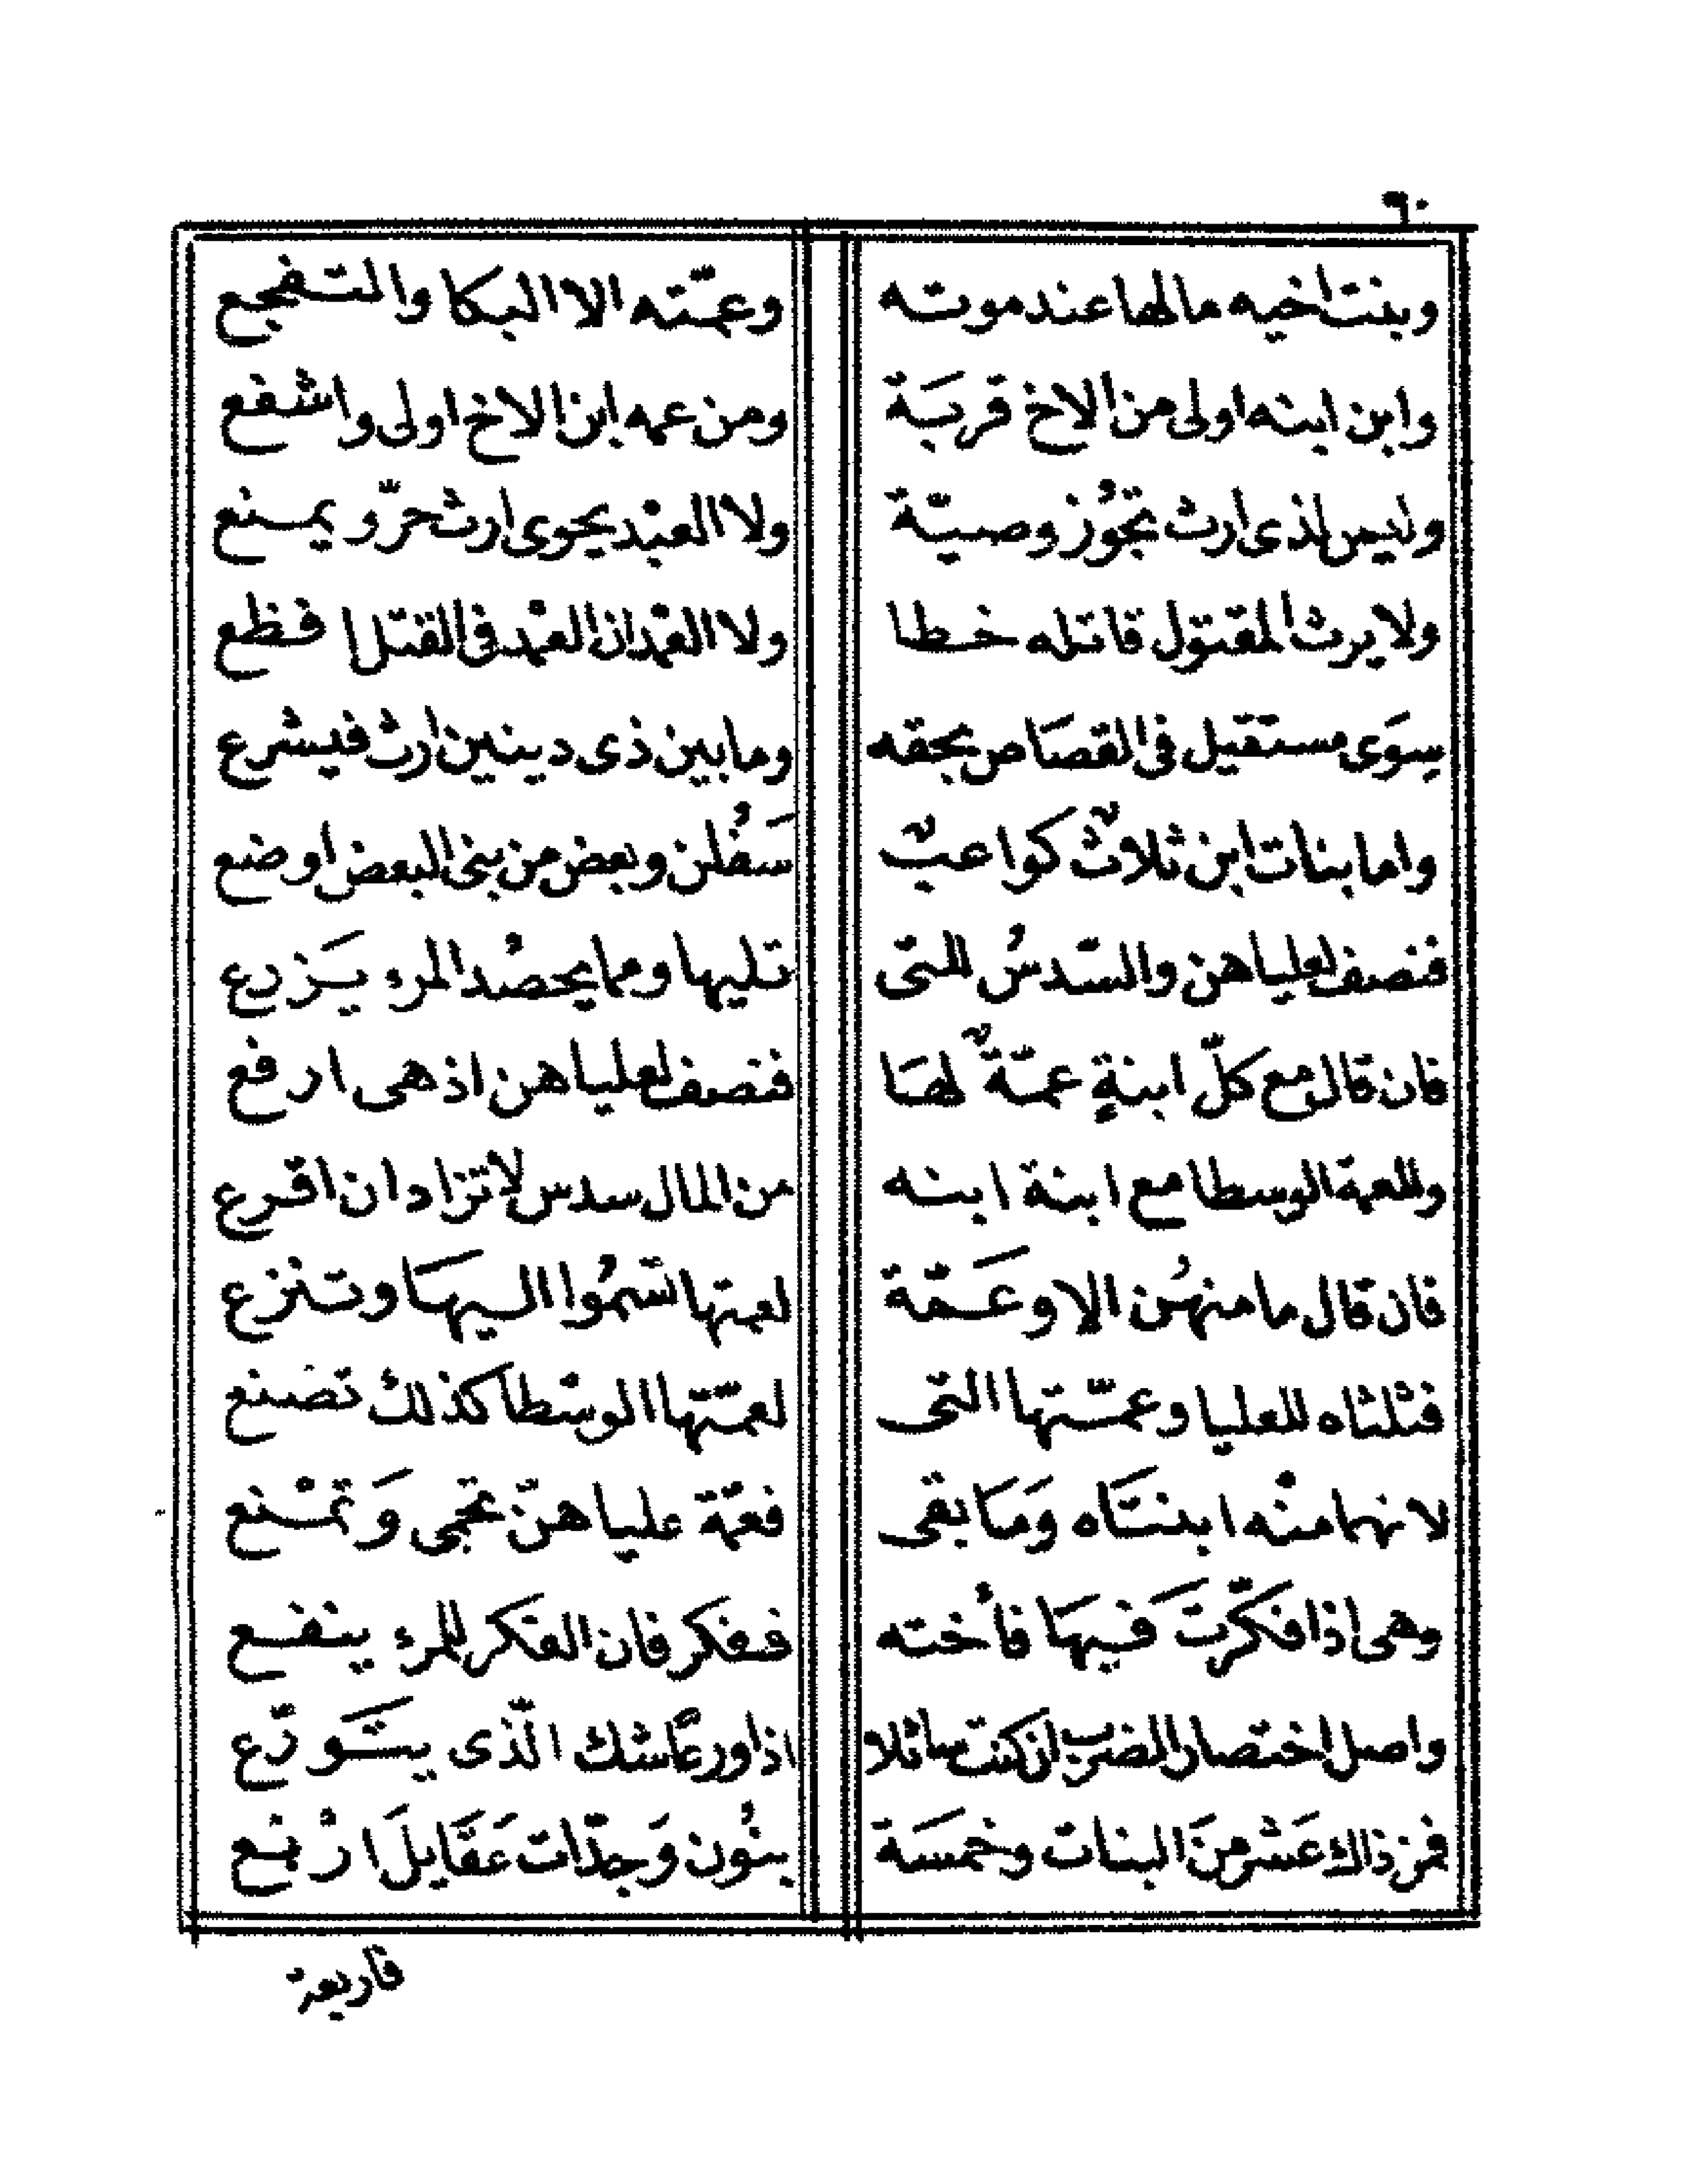 ٦٠
وبنت اخيه مالها عند موته وعمّته الا البكا والتفجع
وابن ابنه اولى من الاخ قربَة ومن عمه ابن الاخ اولى واشفع
وليس لذى ارث تجوُز وصيّة ولا العبْد يحوى ارث حرّ ويمنع
ولا يرث المقتول قاتله خطا ولا العمْد ان العمْد فى القتل افظع
سِوَى مستقيل فى القصَاص بحقه وما بين ذى دينين ارث فيشرع
واما بنات ابن ثلاثٌ كواعبٌ سَفُلن وبعض من بنى البعض اوضع
فنصف لعلياهن والسّدسُ للتى تليها ومما يحصُد المرء يَزرع
فان قال مع كلّ ابنةٍ عمّةٌ لهَا فنصف لعلياهن اذ هى ارفع
وللعمة الوسطا مع ابنة ابنه من المال سدس لا تزاد ان اقرع
فان قال ما منهُن الا وعَمّة لعمتها اسّمُوا اليهَا وتنزع
فثلثاه للعليا وعمّتها التى لعمّتها الوسْطا كذلك تصنع
لانهما منْه ابنتَاه وَمَا بقى فعمّة علياهنّ تحجى وَتمْنع
وهى اذا فكّرتَ فيهَا فأخته ففكر فان الفكر للمرء ينفع
واصل اختصار الضرب ان كنت سائلا اذا ورعًا شك الّذى يتَورّع
فمن ذاك عَشر منَ البنات وخمسَة بنُون وَجدّات عَقَايلَ ارْبع
فاربعة